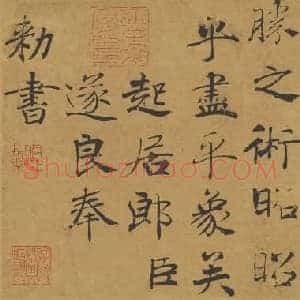 勝之術昭昭
乎盡乎象矣
起居郎臣
遂良奉
勅書